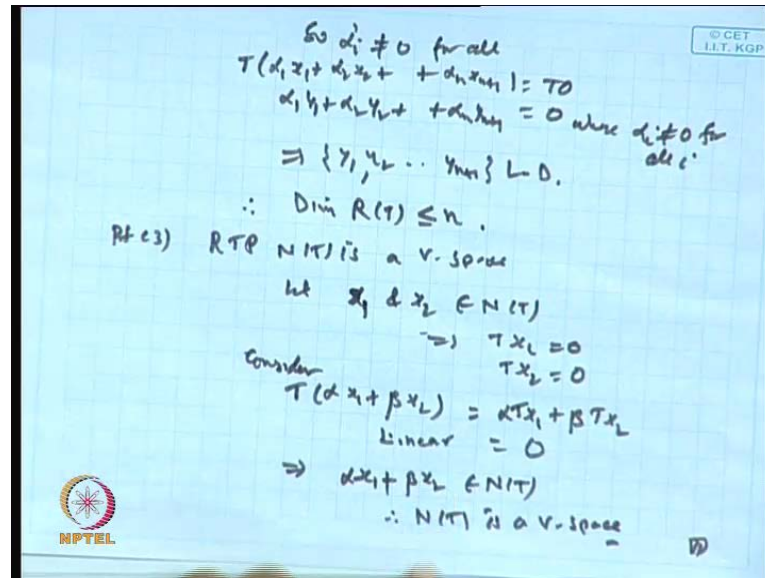 © CET
I.I.T. KGP
So αi ≠ 0 for all
T(α1 x1 + α2 x2 + + αn xn+1) = T0
α1 y1 + α2 y2 + + αn yn+1 = 0 where αi ≠ 0 for all i
⇒ {y1, y2 .. yn+1} L.D.
∴ Dim R(T) ≤ n.
Pf (3) RTP N(T) is a V-space
let x1 & x2 ∈ N(T)
⇒ Tx1 = 0
Tx2 = 0
Consider
T(αx1 + βx2) = αTx1 + βTx2
Linear = 0
⇒ αx1 + βx2 ∈ N(T)
∴ N(T) is a V-space
NPTEL